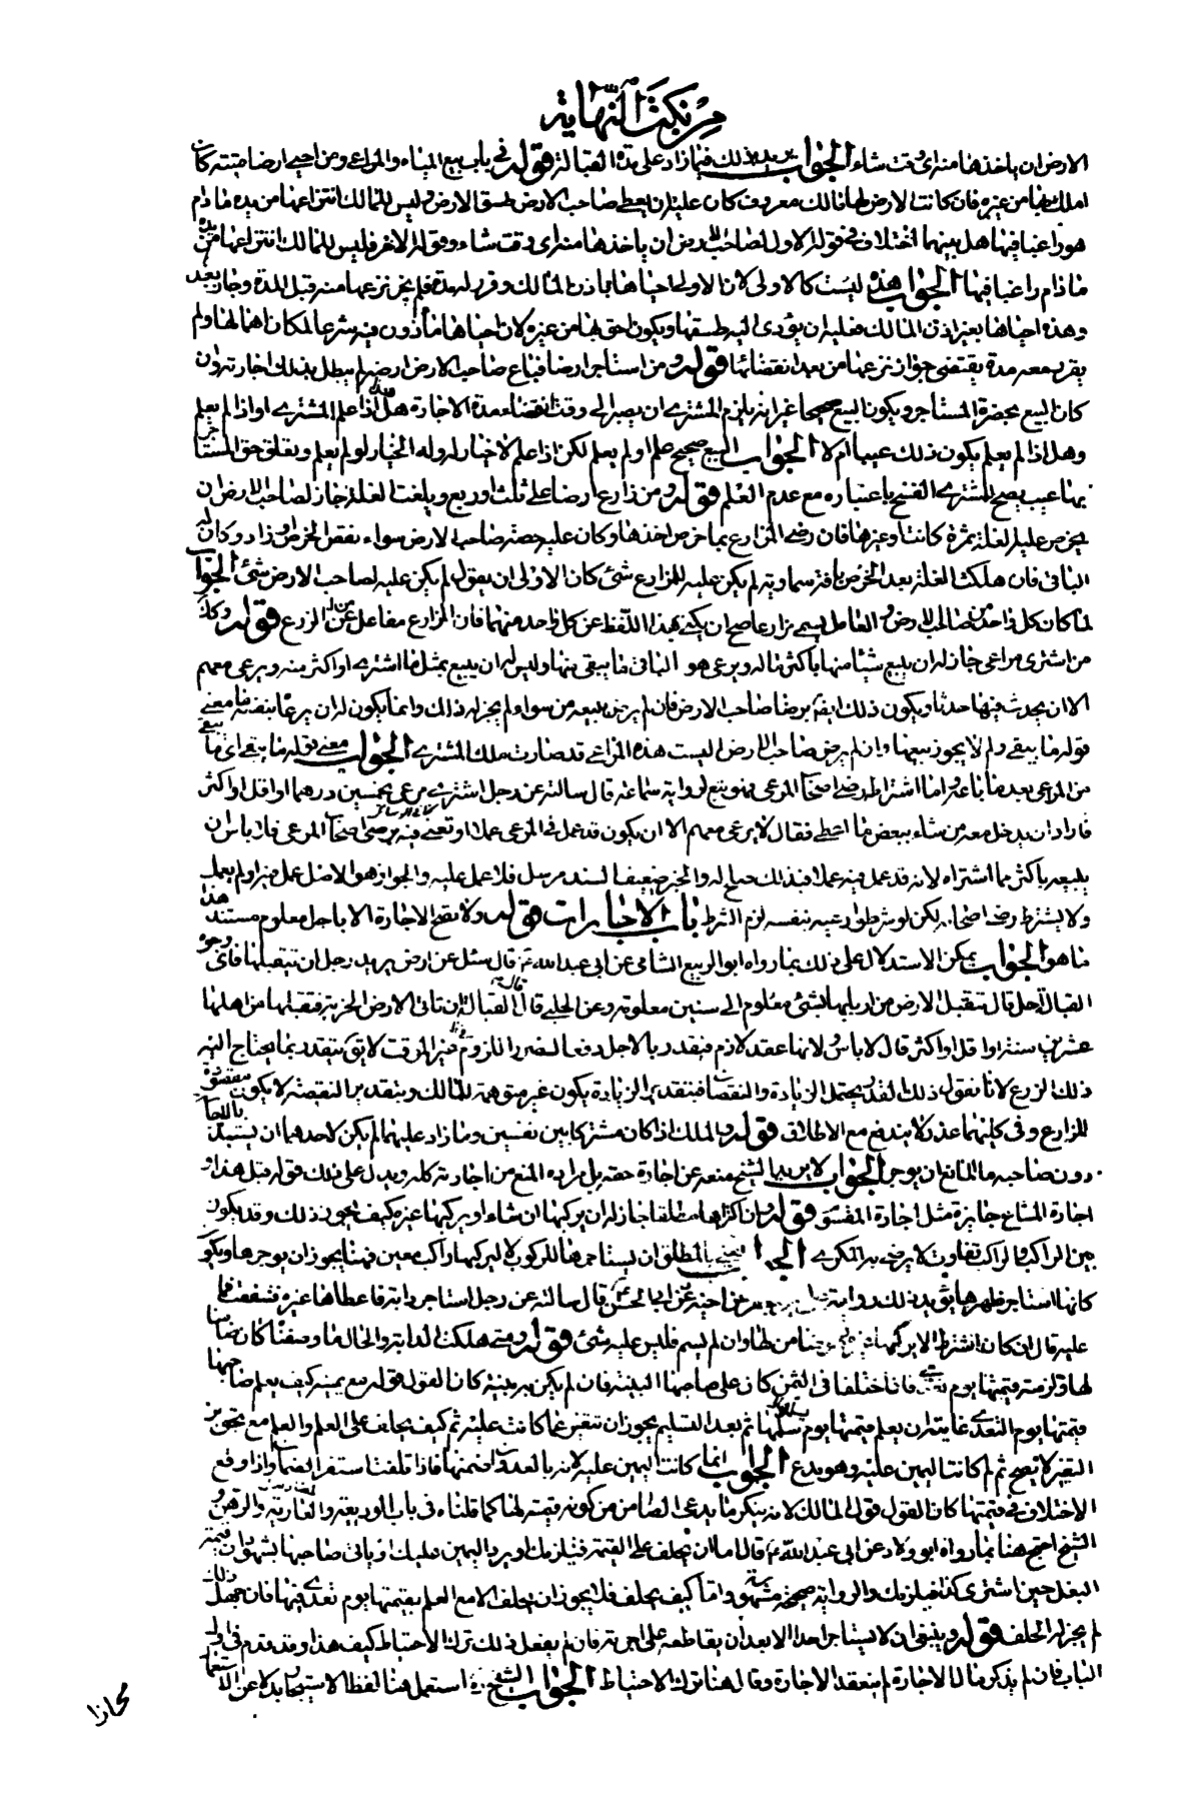 من نكت النهاية
الارض ان ياخذها منه اى وقت شاء الجواب يريد بذلك فيما زاد على مدة القبالة قوله فى باب بيع المياه والمراعى ومن احيى ارضا ميتة كان
املك بها من غيره فان كانت الارض لها مالك معروف كان عليه ان يعطى صاحب الارض طسق الارض وليس للمالك انتزاعها من يده ما دام
هو راغبا فيها هل بينهما اختلاف فى قوله الاول لصاحب الارض ان ياخذها منه اى وقت شاء وقوله الاخر فليس للمالك انتزاعها من يده
ما دام راغبا فيها الجواب هذه ليست كالاولى لان الاولى احياها باذن المالك وقرر له مدة فلم يجز نزعها منه قبل المدة وجاز بعد
وهذه احياها بغير اذن المالك فعليه ان يؤدى اليه طسقها ويكون احق بها من غيره لان احياها مأذون فيه شرعا لمكان اهمالها ولم
يقرر معه مدة يقتضى جواز نزعها من بعد انقضائها قوله ومن استاجر ارضا فباع صاحب الارض ارضه لم يبطل بذلك اجارته وان
كان البيع بحضرة المستاجر ويكون البيع صحيحا غير انه يلزم المشترى ان يصبر الى وقت انقضاء مدة الاجارة هل هذا اذا علم المشترى او اذا لم يعلم
وهل اذا لم يعلم يكون ذلك عيبا ام لا الجواب البيع صحيح علم او لم يعلم لكن اذا علم لا خيار له وله الخيار لو لم يعلم وتعلق حق المستاجر
بها عيب يصح للمشترى الفسخ باعتباره مع عدم العلم قوله ومن زارع ارضا على ثلث او ربع وبلغت الغلة جاز لصاحب الارض ان
يخرص عليه الغلة ثمرة كانت او غيرها فان رضى المزارع بما خرص اخذها وكان عليه حصة صاحب الارض سواء نقص الخرص او زاد وكان له
الباقى فان هلكت الغلة بعد الخرص بافة سماوية لم يكن عليه للمزارع شئ كان الاولى ان يقول لم يكن عليه لصاحب الارض شئ الجواب
لما كان كل واحد من صاحب الارض والعامل يسمى مزارعا صح ان يكنى بهذا اللفظ عن كل واحد منهما فان المزارع مفاعل من الزرع قوله وكل
من اشترى مراعى جاز له ان يبيع شيئا منها باكثر ماله ويرعى هو الباقى ما يبقى منها وليس له ان يبيع بمثل ما اشترى او اكثر منه ويرعى معهم
الا ان يحدث فيها حدثا ويكون ذلك ايضا برضا صاحب الارض فان لم يرض ببيعه من سواه لم يجز له ذلك وانما يكون له ان يرعا بنفسه ما معنى
قوله ما يبقى ولم لا يجوز بيعها وان لم يرض صاحب الارض اليست هذه المراعى قد صارت ملك المشترى الجواب معنى قوله ما يبقى اى ما يبقى
من المرعى بعد ما باعه واما اشتراط رضى اصحاب المرعى فهو تبع لرواية سماعة قال سالته عن رجل اشترى مرعى بخمسين درهما او اقل او اكثر
فاراد ان يدخل معه من شاء ببعض ما اعطى فقال لا يرعى معهم الا ان يكون قد عمل فى المرعى عملا او تعنى فيه برضى اصحاب المرعى فلا باس ان
يبيعه باكثر مما اشتراه لانه قد عمل فيه عملا فبذلك صح له والخبر ضعيف السند مرسل فلا عمل عليه والجواز هو الاصل عمل فيه او لم يعمل
ولا يشترط رضى اصحابه لكن لو شرطوا رعيه بنفسه لزم الشرط باب الاجارات قوله ولا تصح الاجارة الا باجل معلوم مستند هذا
ما هو الجواب يمكن الاستدلال على ذلك بما رواه ابو الربيع الشامى عن ابى عبد الله ع قال سئل عن ارض يريد رجل ان يتقبلها فاى وجوه
القبالة احل قال يتقبل الارض من اربابها بشئ معلوم الى سنين معلومة وعن الحلبى قال القبالة ان تاتى الارض الخربة فتقبلها من اهلها
عشرين سنة او اقل او اكثر قال لا باس ولانها عقد لازم فيتقدر بالاجل دفعا لضرر اللزوم غير الموقت لا يق يتقدر بما يحتاج اليه
ذلك الزرع لانا نقول ذلك القدر يحتمل الزيادة والنقصان فبتقدير الزيادة يكون غير متوهمة للمالك وبتقدير النقيصة لا يكون مقصودة
للزارع وفى كليهما غرر لا يندفع مع الاطلاق قوله والملك اذا كان مشتركا بين نفسين وما زاد عليهما لم يكن لاحدهما ان يستبد باللاجارة
دون صاحبه ما المانع ان يوجر الجواب لا يريد الشيخ منعه عن اجارة حصته بل مراده المنع من اجارته كله ويدل على ذلك قوله قبل هذا و
اجارة المشاع جايزة مثل اجارة المقسوم قوله وان اكراها مطلقا جاز له ان يركبها ان شاء او يركبها غيره كيف يجوز ذلك وقد يكون
بين الراكب والراكب تفاوت لا يرضى به المكرى الجواب يعنى بالمطلق ان يستاجرها للركوب لا ليركبها راكب معين فهنا يجوز ان يوجرها ويكون
كانها استاجر ظهرها يؤيد ذلك رواية على بن جعفر عن اخيه عن ابى الحسن ع قال سالته عن رجل استاجر دابة فاعطاها غيره فنفقت فما
عليه قال ان كان اشترط الا يركبها غيره فهو ضامن لها وان لم يسم فليس عليه شئ قوله ومتى هلكت الدابة والحال ما وصفناه كان ضامنا
لها ولزمته قيمتها يوم تعدى فان اختلفا فى الثمن كان على صاحبها البينة فان لم يكن له بينة كان القول قوله مع يمينه كيف يعلم صاحبها
قيمتها يوم التعدى غايته ان يعلم قيمتها يوم سلمها ثم بعد التسليم يجوز ان تتغير عما كانت عليه ثم كيف يحلف على العلم والعلم مع تجويز
التغير لا يصح ثم لم كانت اليمين عليه وهو يدعى الجواب انما كانت اليمين عليه لانه بالعدوان ضمنها فاذا تلفت استقر الضمان واذا وقع
الاختلاف فى قيمتها كان القول قول المالك لانه ينكر ما يدعى الضامن من كونه قيمته لها كما قلناه فى باب الوديعة والعارية والرهن و
الشيخ احتج هنا بما رواه ابو ولاد عن ابى عبد الله ع قال اما ان يحلف على القيمة فيلزمك او يرد اليمين عليك او ياتى صاحبها بشهود ان قيمة
البغل حين اشترى كذا فيلزمك والرواية صحيحة مشهورة واما كيف يحلف فلا يجوز ان يحلف الا مع العلم بقيمتها يوم تعدى فيها فان جهل ذلك
لم يجز له الحلف قوله وينبغى ان لا يستاجر احدا الا بعد ان يقاطعه على اجرته فان لم يفعل ذلك ترك الاحتياط كيف هذا وقد قدم فى اول
الباب فان لم يذكر مال الاجارة لم ينعقد الاجارة وقال هنا ترك الاحتياط الجواب الشيخ ره استعمل هنا لفظ الاستيجار بدلا عن الاستعمال
مجازا